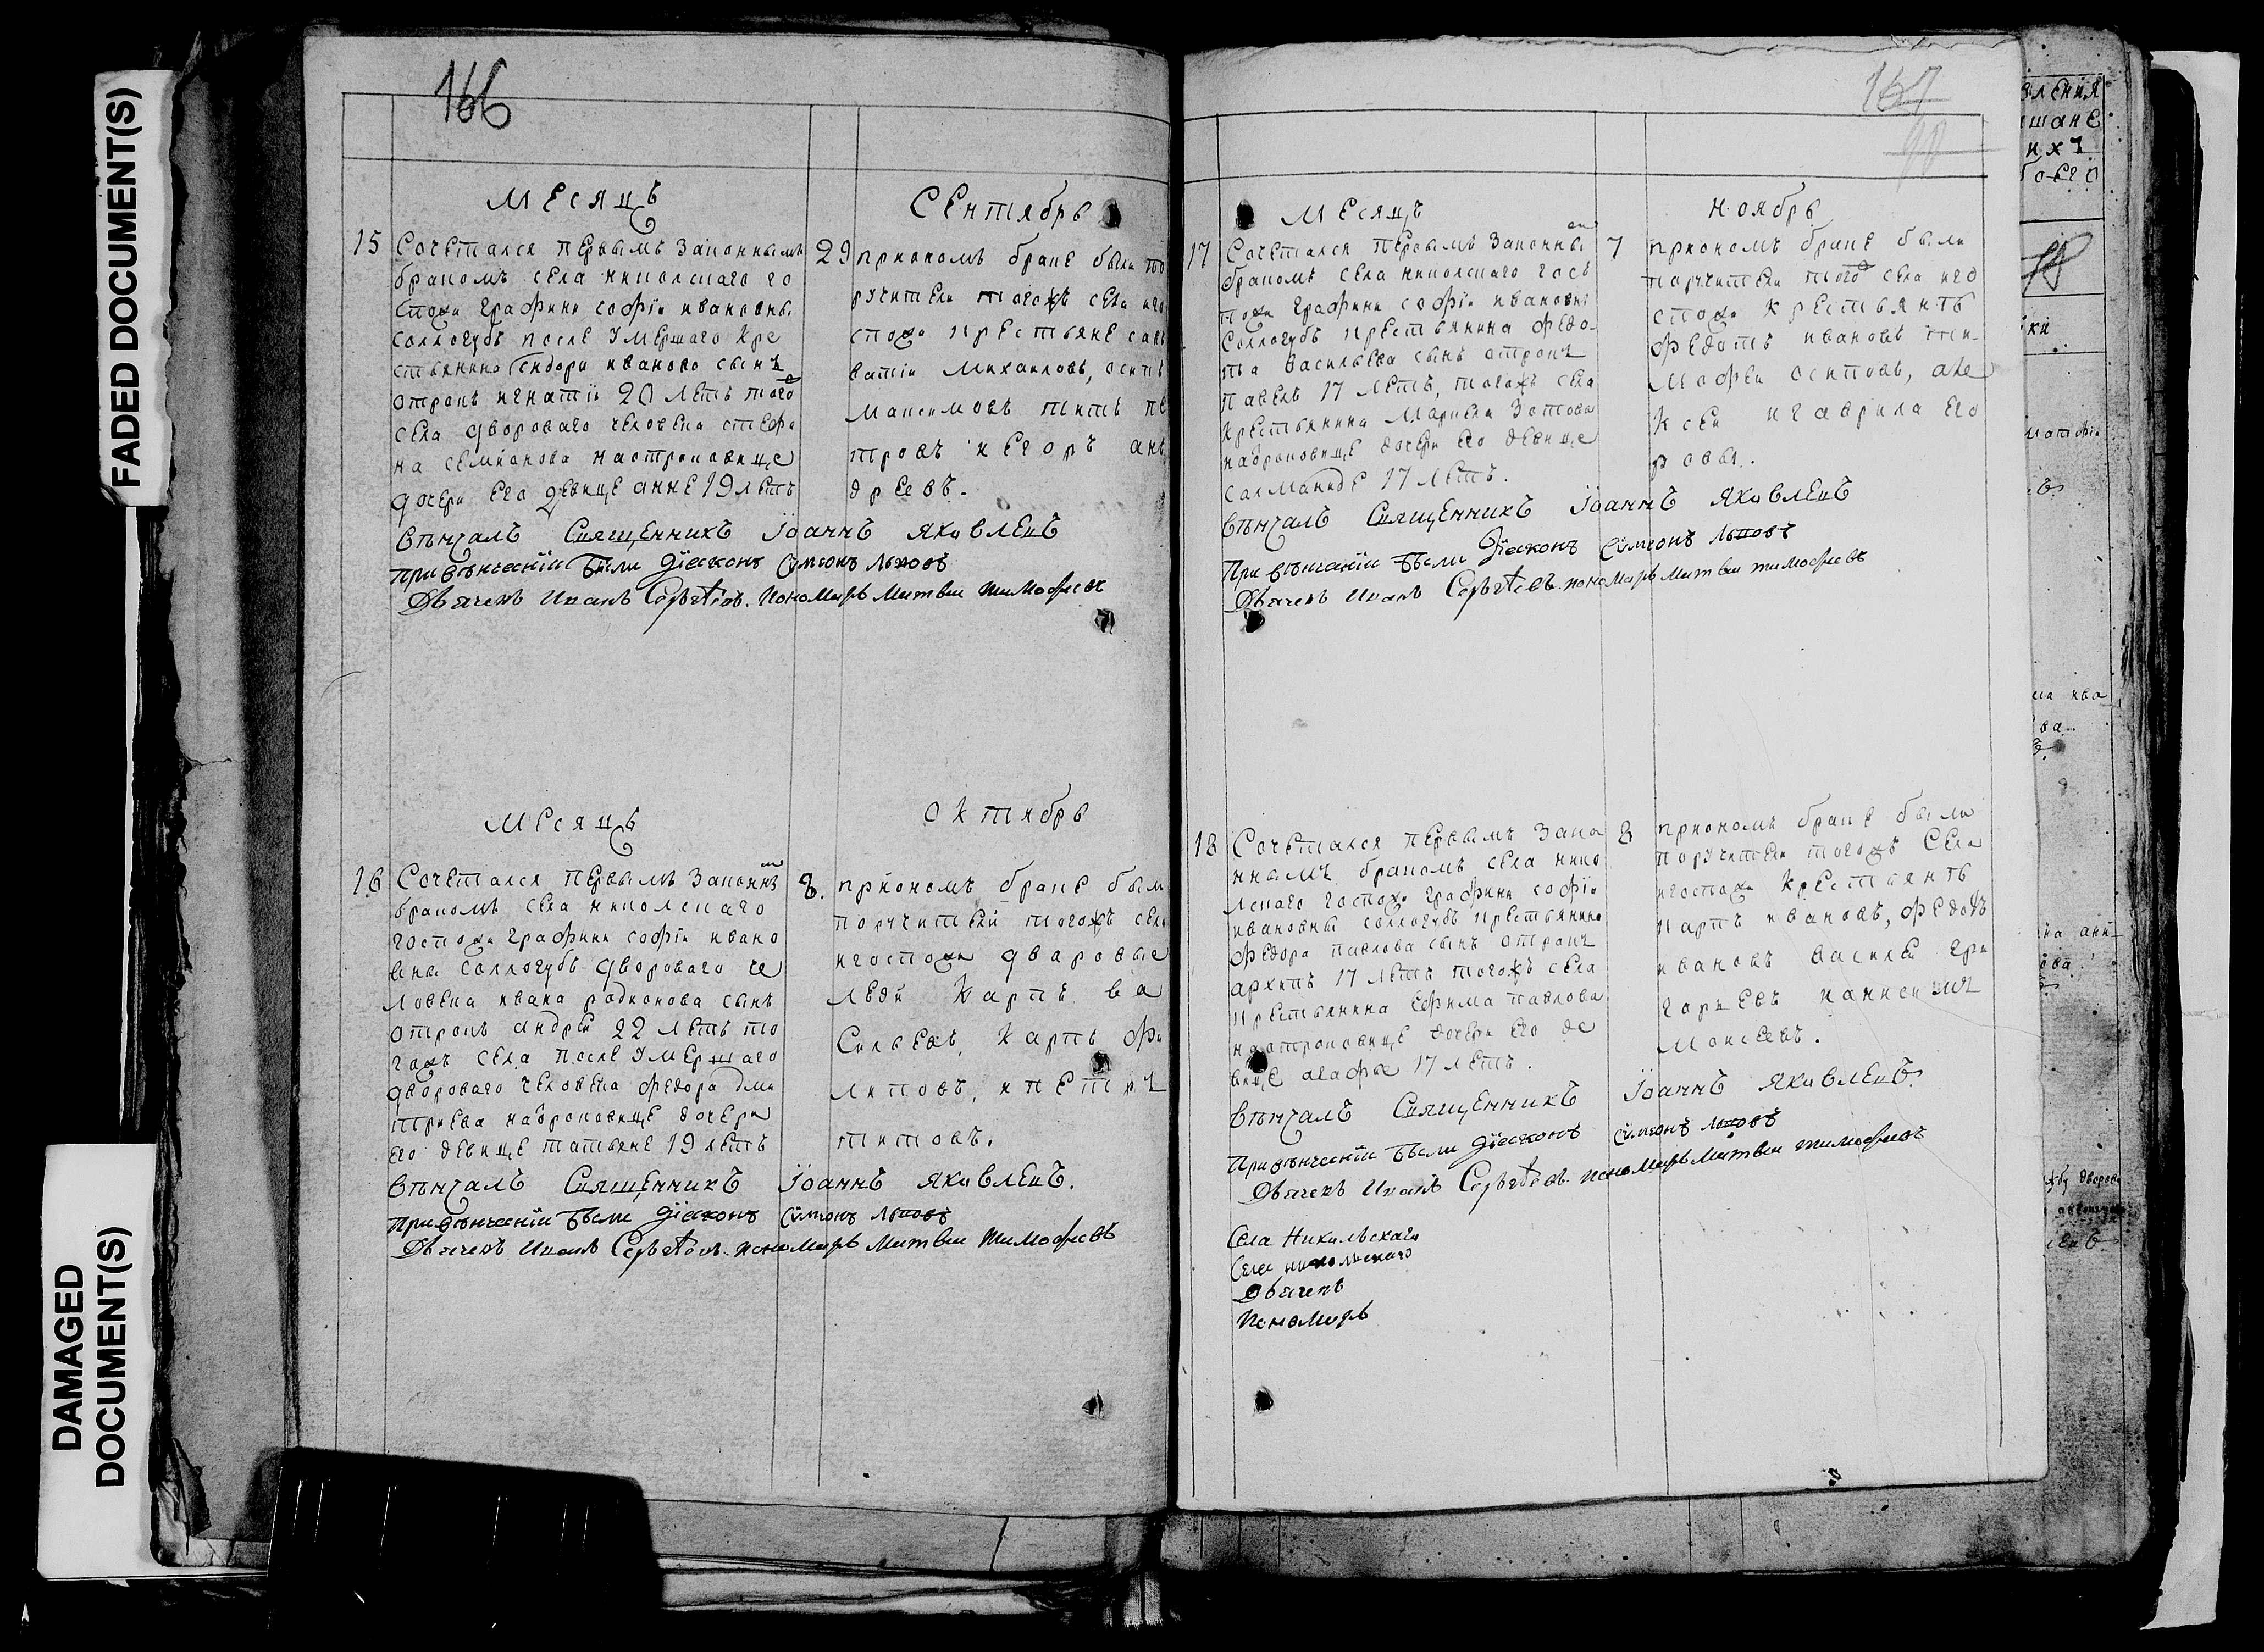 FADED DOCUMENT(S)
DAMAGED
DOCUMENT(S)
166
Месяцъ
Сентябрь
15
Сочетался первымъ законнымъ
бракомъ села николскаго го
спожи графини софiи ивановны
соллогубъ после умершаго кре
стьянина сидора иванова сынъ
отрокъ игнатiи 20 летъ того
села двороваго человека стефа
на семионова наотроковице
дочери его девице анне 19 летъ
29
приономъ браке были по
ручители тогожъ села иго
спожи крестьяне сав
ватiи михаиловъ, осипъ
максимовъ титъ пе
тровъ иегоръ ан
дреевъ.
Вѣнчалъ Священникъ Iоаннъ Яковлевъ
При вѣнчанiи были дiаконъ Симеонъ Львовъ
Дьячекъ Иванъ Сергѣевъ. пономарь Матвеи тимофеевъ
Месяцъ
октябрь
16
Сочетался первымъ законны
бракомъ села николскаго
госпожи графини софiи ивано
вны соллогубъ двороваго че
ловека ивана радионова сынъ
отрокъ андреи 22 летъ то
гожъ села после умершаго
двороваго человека федора дми
триева наотроковице дочери
его девице татьяне 19 летъ
8.
приономъ браке были
поручители тогожъ села
игоспожи дваровые
люди карпъ ва
силевъ, карпъ фи
липовъ, ипетръ
титовъ.
Вѣнчалъ Священникъ Iоаннъ Яковлевъ.
При вѣнчанiи были дiаконъ Симеонъ Львовъ
Дьячекъ Иванъ Сергѣевъ. пономарь Матвеи тимофеевъ
167
Месяцъ
ноябрь
17
Сочетался первымъ законны
бракомъ села николскаго гос
пожи графини софiи ивановны
соллогубъ крестьянина федо
та васильева сынъ отрокъ
павелъ 17 летъ, тогожъ села
крестьянина маркела зотова
наотроковице дочери его девице
саломаниде 17 летъ.
7
приономъ браке были
поручители того села иго
спожи крестьянъ
федотъ ивановъ
мафеи осиповъ, але
ксеи игаврила его
ровы.
Вѣнчалъ Священникъ Iоаннъ Яковлевъ
При вѣнчанiи были Дiаконъ Симеонъ Львовъ
Дьячекъ Иванъ Сергѣевъ. пономарь Матвеи тимофеевъ
18
Сочетался первымъ зако
ннымъ бракомъ села нико
лскаго госпожи графини софiи
ивановны соллогубъ крестьянина
федора павлова сынъ отрокъ
архипъ 17 летъ тогожъ села
крестьянина ефима павлова
наотроковице дочери его де
вице агафье 17 летъ.
8
приономъ браке были
поручители тогожъ села
игоспожи крестьянъ
карпъ ивановъ, федоръ
ивановъ васелеи гри
горьевъ
моисеевъ.
Вѣнчалъ Священникъ Iоаннъ Яковлевъ.
При вѣнчанiи были дiаконъ Симеонъ Львовъ
Дьячекъ Иванъ Сергѣевъ. пономарь Матвеи тимофеевъ
Села Никольскаго
Села никольскаго
Дьячекъ
Пономарь